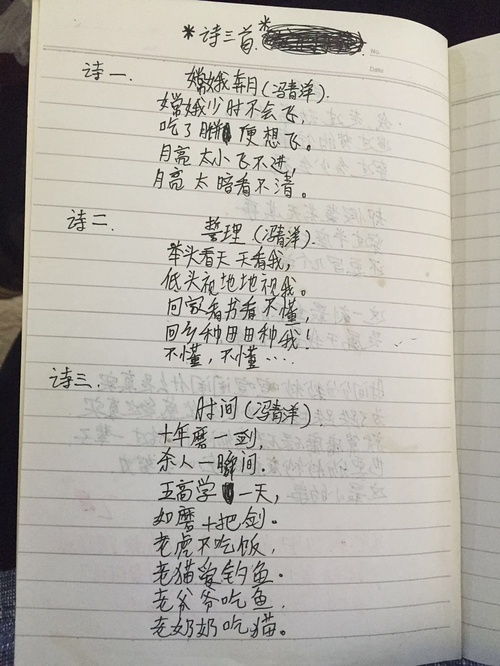 *诗三首.*
No.
Date
诗一.
嫦娥奔月(冯青洋).
嫦娥少时不会飞,
吃了胖便想飞。
月亮太小飞不进,
月亮太暗看不清。
诗二.
哲理(冯青洋).
举头看天天看我,
低头视地地视我。
回家看书看不懂!
回乡种田田种我!
不懂,不懂....
诗三.
时间(冯青洋).
十年磨一剑,
杀人一瞬间.
五高学一天,
如磨十把剑.
老虎不吃饭,
老猫爱钓鱼.
老爷爷吃鱼,
老奶奶吃猫。